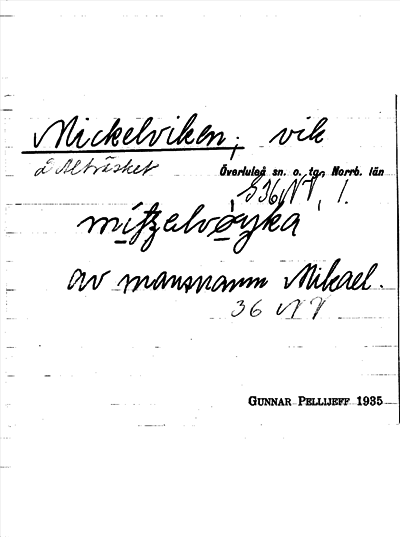 Mickelviken, vik
å Alträsket
Överluleå sn. o. tg., Norrb. län
S 36 NV, 1.
av mansnamn Mikael.
36 NV
GUNNAR PELLIJEFF 1935